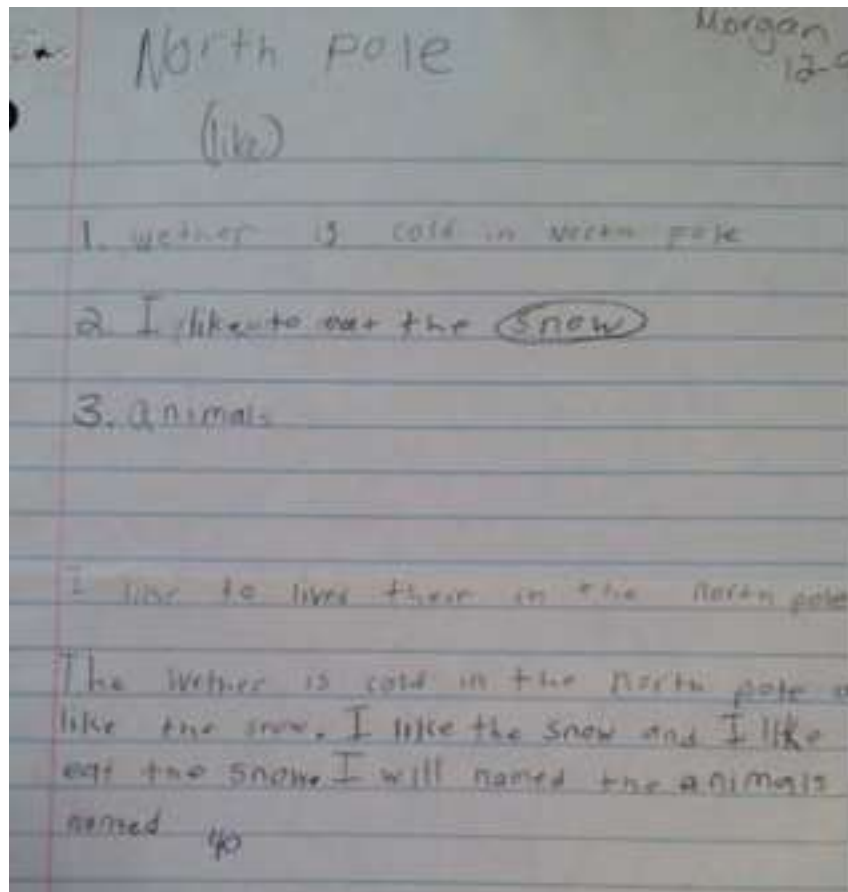 Morgan
North pole
12-
(like)
1. wether is cold in North pole
2 I like to eat the snow
3. animals
I like to lived their in the north pole
The wether is cold in the north pole
like the snow. I like the snow and I like
eat the snow. I will named the animals
named 40